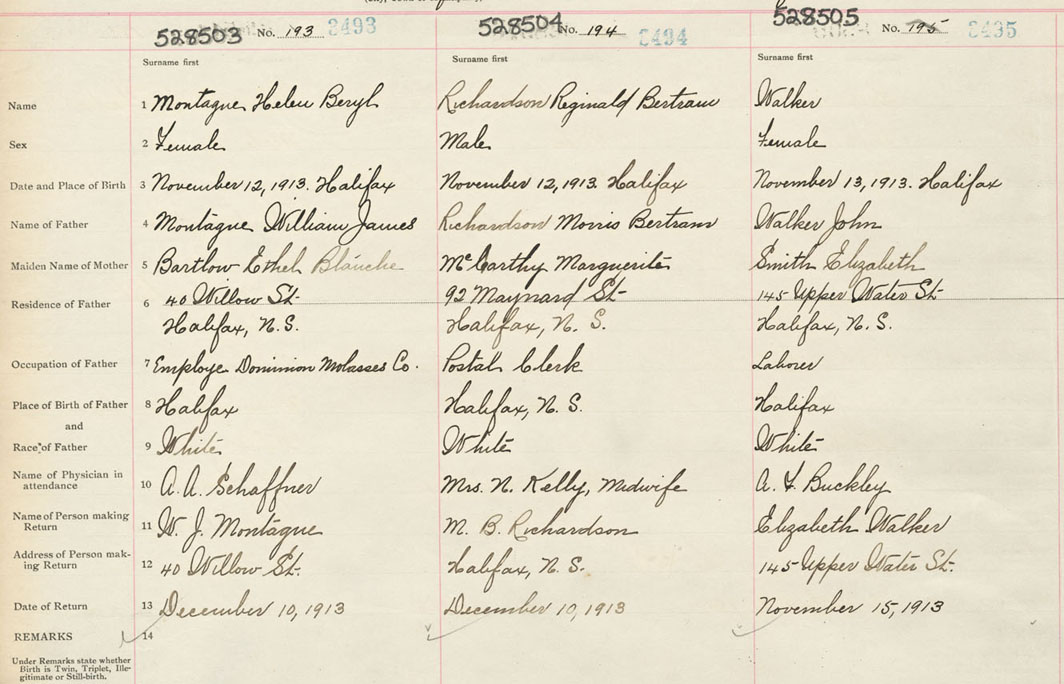 528503 No. 193 3493 528504 No. 194 3494 528505 No. 195 3495
Surname first Surname first Surname first
Name 1 Montague Helen Beryl Richardson Reginald Bertram Walker
Sex 2 Female Male Female
Date and Place of Birth 3 November 12, 1913. Halifax November 12, 1913. Halifax November 13, 1913. Halifax
Name of Father 4 Montague William James Richardson Morris Bertram Walker John
Maiden Name of Mother 5 Bartlow Ethel Blanche McCarthy Marguerite Smith Elizabeth
Residence of Father 6 40 Willow St. 92 Maynard St. 145 Upper Water St.
Halifax, N.S. Halifax, N.S. Halifax, N.S.
Occupation of Father 7 Employe Dominion Molasses Co. Postal Clerk Laborer
Place of Birth of Father 8 Halifax Halifax, N.S. Halifax
and
Race of Father 9 White White White
Name of Physician in
attendance 10 A. A. Schaffner Mrs. N. Kelly, Midwife A. F. Buckley
Name of Person making
Return 11 W. J. Montague M. B. Richardson Elizabeth Walker
Address of Person mak-
ing Return 12 40 Willow St. Halifax, N.S. 145 Upper Water St.
Date of Return 13 December 10, 1913 December 10, 1913 November 15, 1913
REMARKS 14
Under Remarks state whether
Birth is Twin, Triplet, Ille-
gitimate or Still-birth.